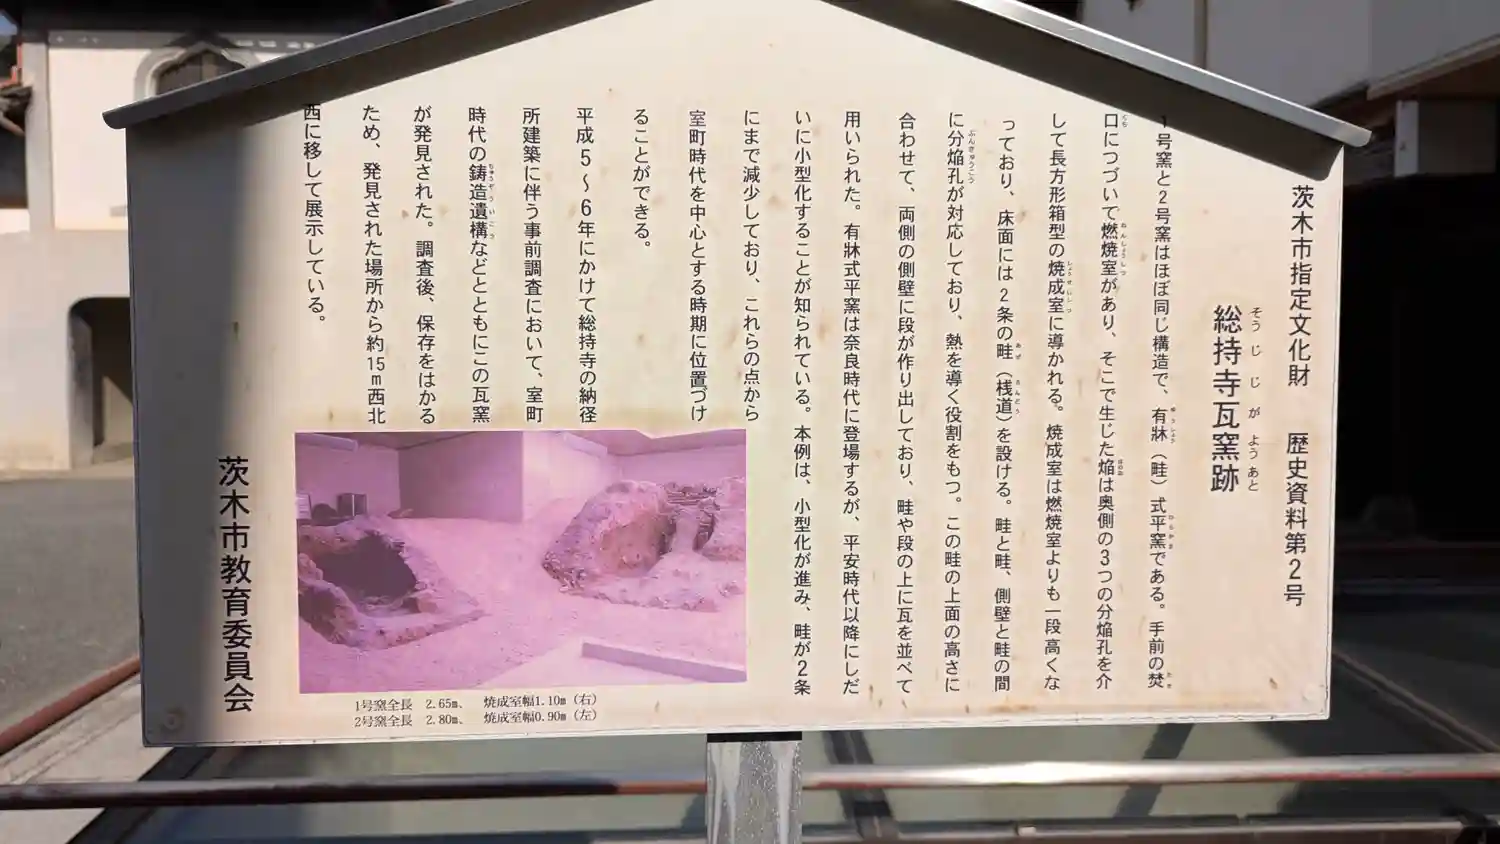 茨木市指定文化財　歴史資料第2号
総持寺瓦窯跡
そうじじがようあと
1号窯と2号窯はほぼ同じ構造で、有牀（畦）式平窯である。手前の焚
口につづいて燃焼室があり、そこで生じた焔は奥側の3つの分焔孔を介
して長方形箱型の焼成室に導かれる。焼成室は燃焼室よりも一段高くな
っており、床面には2条の畦（桟道）を設ける。畦と畦、側壁と畦の間
に分焔孔が対応しており、熱を導く役割をもつ。この畦の上面の高さに
合わせて、両側の側壁に段が作り出しており、畦や段の上に瓦を並べて
用いられた。有牀式平窯は奈良時代に登場するが、平安時代以降にしだ
いに小型化することが知られている。本例は、小型化が進み、畦が2条
にまで減少しており、これらの点から
室町時代を中心とする時期に位置づけ
ることができる。
平成5～6年にかけて総持寺の納径
所建築に伴う事前調査において、室町
時代の鋳造遺構などとともにこの瓦窯
が発見された。調査後、保存をはかる
ため、発見された場所から約15m西北
西に移して展示している。
1号窯全長　2.65m、　焼成室幅1.10m（右）
2号窯全長　2.80m、　焼成室幅0.90m（左）
茨木市教育委員会